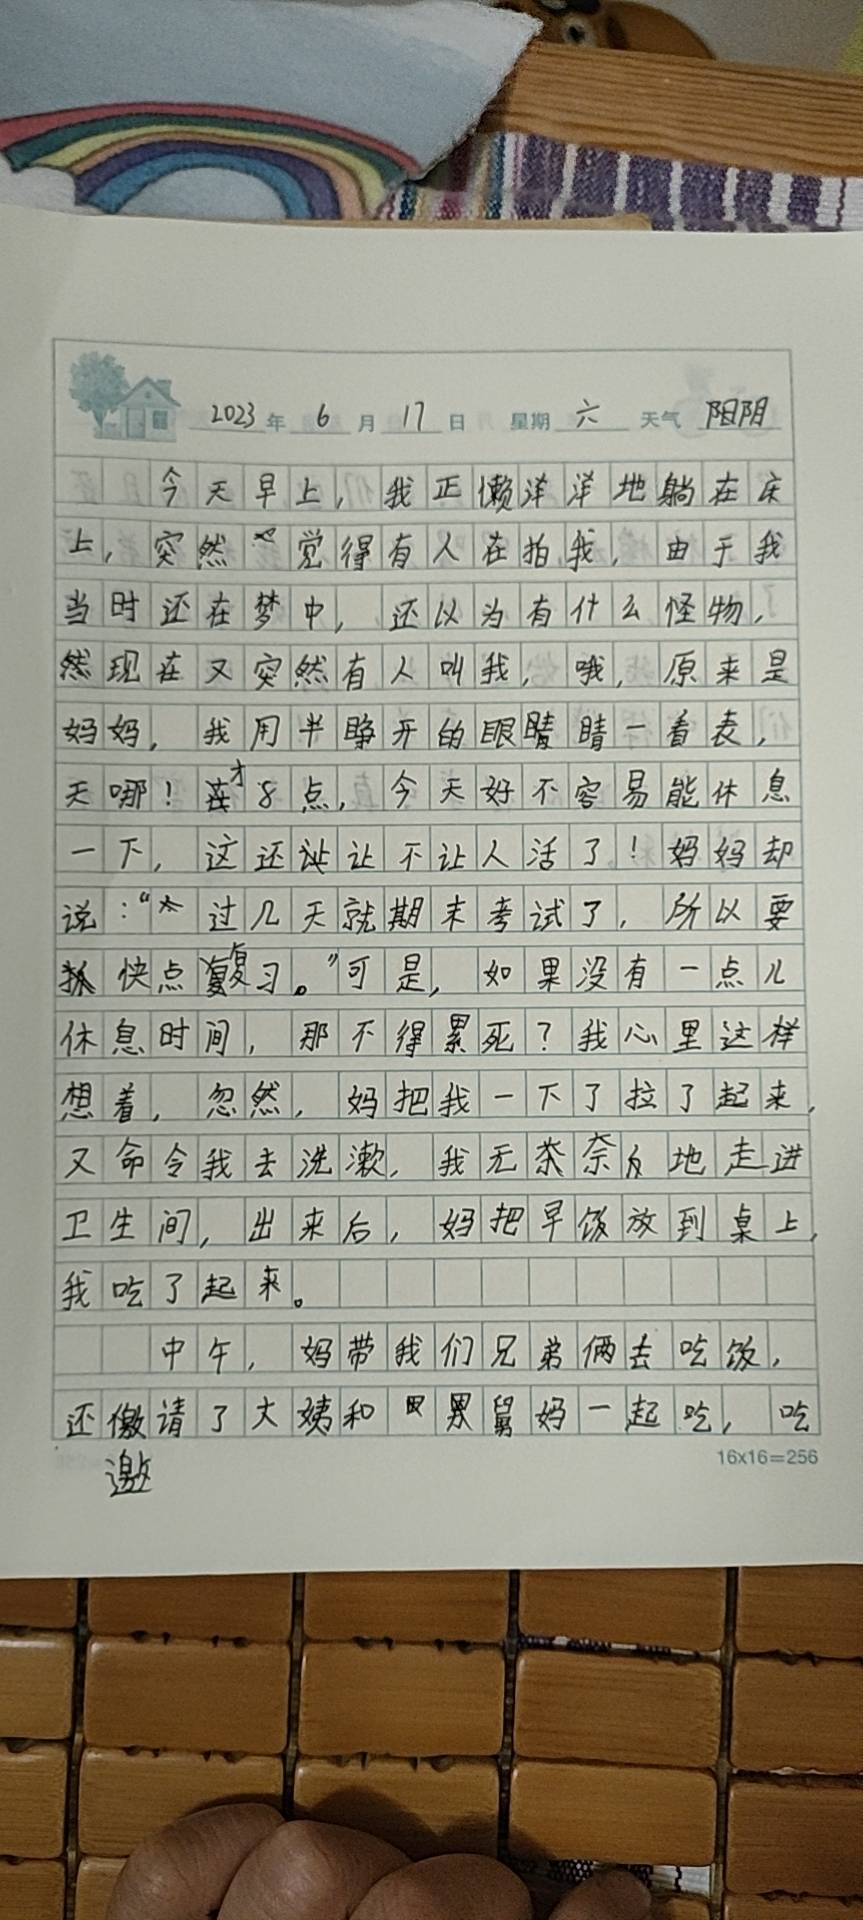 2023年 6月 17日 星期六 天气 阳阴
今天早上，我正懒洋洋地躺在床
上，突然觉得有人在拍我，由于我
当时还在梦中，还以为有什么怪物，
然现在又突然有人叫我，哦，原来是
妈妈，我用半睁开的眼睛睛一看表，
天哪！才8点，今天好不容易能休息
一下，这还让不让人活了！妈妈却
说：“过几天就期末考试了，所以要
抓快点复习。”可是，如果没有一点儿
休息时间，那不得累死？我心里这样
想着，忽然，妈把我一下了拉了起来，
又命令我去洗漱，我无奈地走进
卫生间，出来后，妈把早饭放到桌上，
我吃了起来。
中午，妈带我们兄弟俩去吃饭，
还邀请了大姨和舅妈一起吃，吃
邀
16x16=256